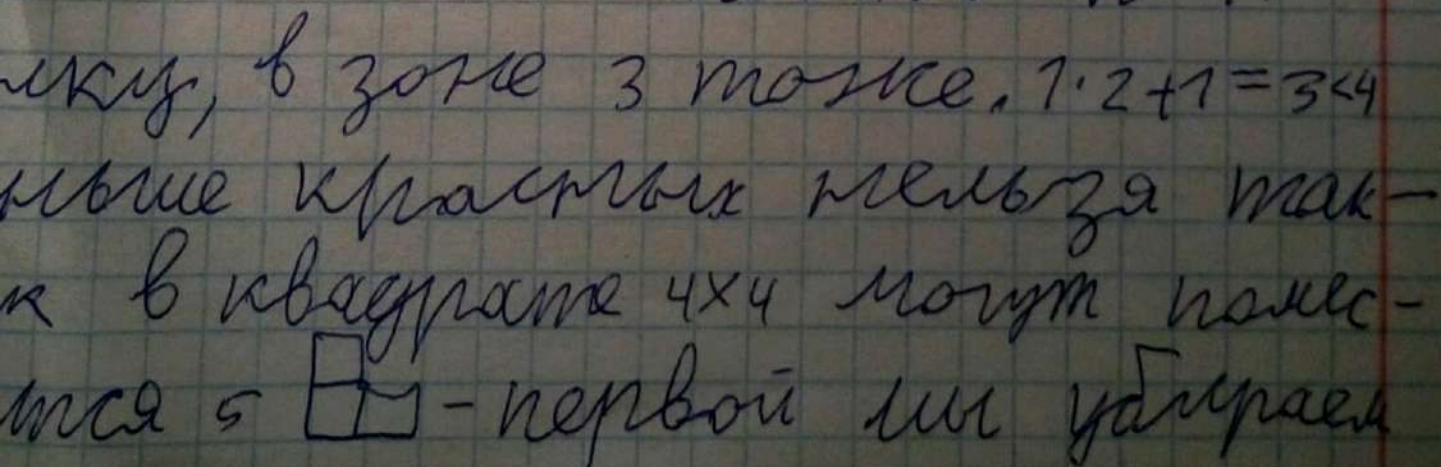 лку, в зоне 3 тоже. 1·2+1=3<4
ньше красных нельзя так-
к в квадрате 4x4 могут помес-
тся 5 - первой мы убираем